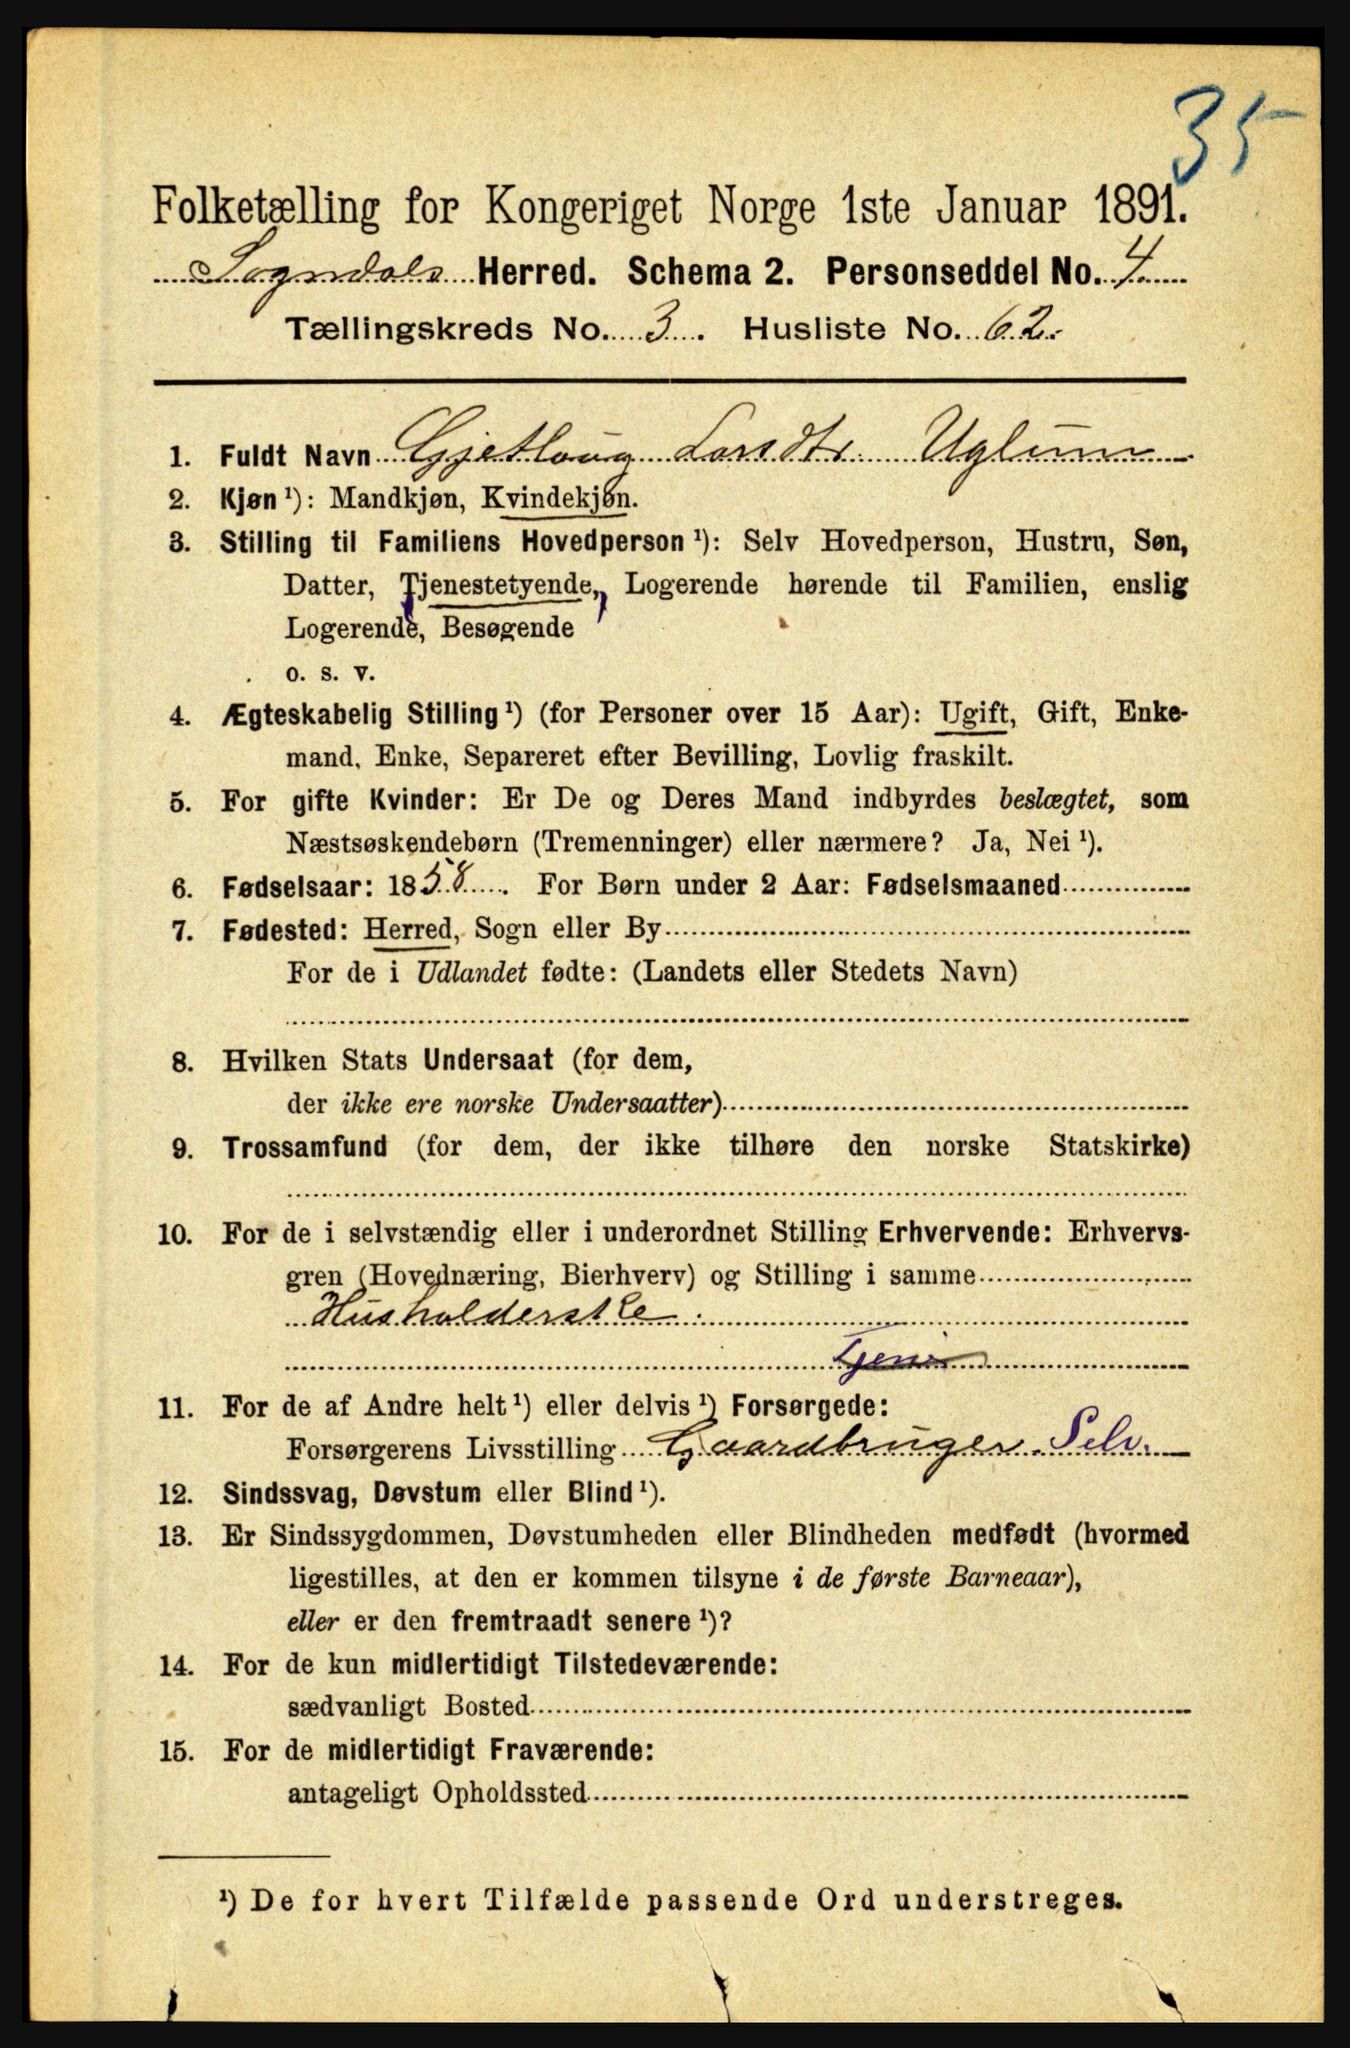 35
Folketælling for Kongeriget Norge 1ste Januar 1891.
Sogndals Herred. Schema 2. Personseddel No. 4
Tællingskreds No. 3. Husliste No. 62.
1. Fuldt Navn Gjetlaug Larsdtr. Uglum
2. Kjøn ¹): Mandkjøn, Kvindekjøn.
3. Stilling til Familiens Hovedperson ¹): Selv Hovedperson, Hustru, Søn,
Datter, Tjenestetyende, Logerende hørende til Familien, enslig
Logerende, Besøgende
o. s. v.
4. Ægteskabelig Stilling ¹) (for Personer over 15 Aar): Ugift, Gift, Enke-
mand, Enke, Separeret efter Bevilling, Lovlig fraskilt.
5. For gifte Kvinder: Er De og Deres Mand indbyrdes beslægtet, som
Næstsøskendebørn (Tremenninger) eller nærmere? Ja, Nei ¹).
6. Fødselsaar: 1858. For Børn under 2 Aar: Fødselsmaaned
7. Fødested: Herred, Sogn eller By
For de i Udlandet fødte: (Landets eller Stedets Navn)
8. Hvilken Stats Undersaat (for dem,
der ikke ere norske Undersaatter)
9. Trossamfund (for dem, der ikke tilhøre den norske Statskirke)
10. For de i selvstændig eller i underordnet Stilling Erhvervende: Erhvervs-
gren (Hovednæring, Bierhverv) og Stilling i samme
Husholderske.
11. For de af Andre helt ¹) eller delvis ¹) Forsørgede:
Forsørgerens Livsstilling Gaardbruger Selv.
12. Sindssvag, Døvstum eller Blind ¹).
13. Er Sindssygdommen, Døvstumheden eller Blindheden medfødt (hvormed
ligestilles, at den er kommen tilsyne i de første Barneaar),
eller er den fremtraadt senere ¹)?
14. For de kun midlertidigt Tilstedeværende:
sædvanligt Bosted
15. For de midlertidigt Fraværende:
antageligt Opholdssted
¹) De for hvert Tilfælde passende Ord understreges.